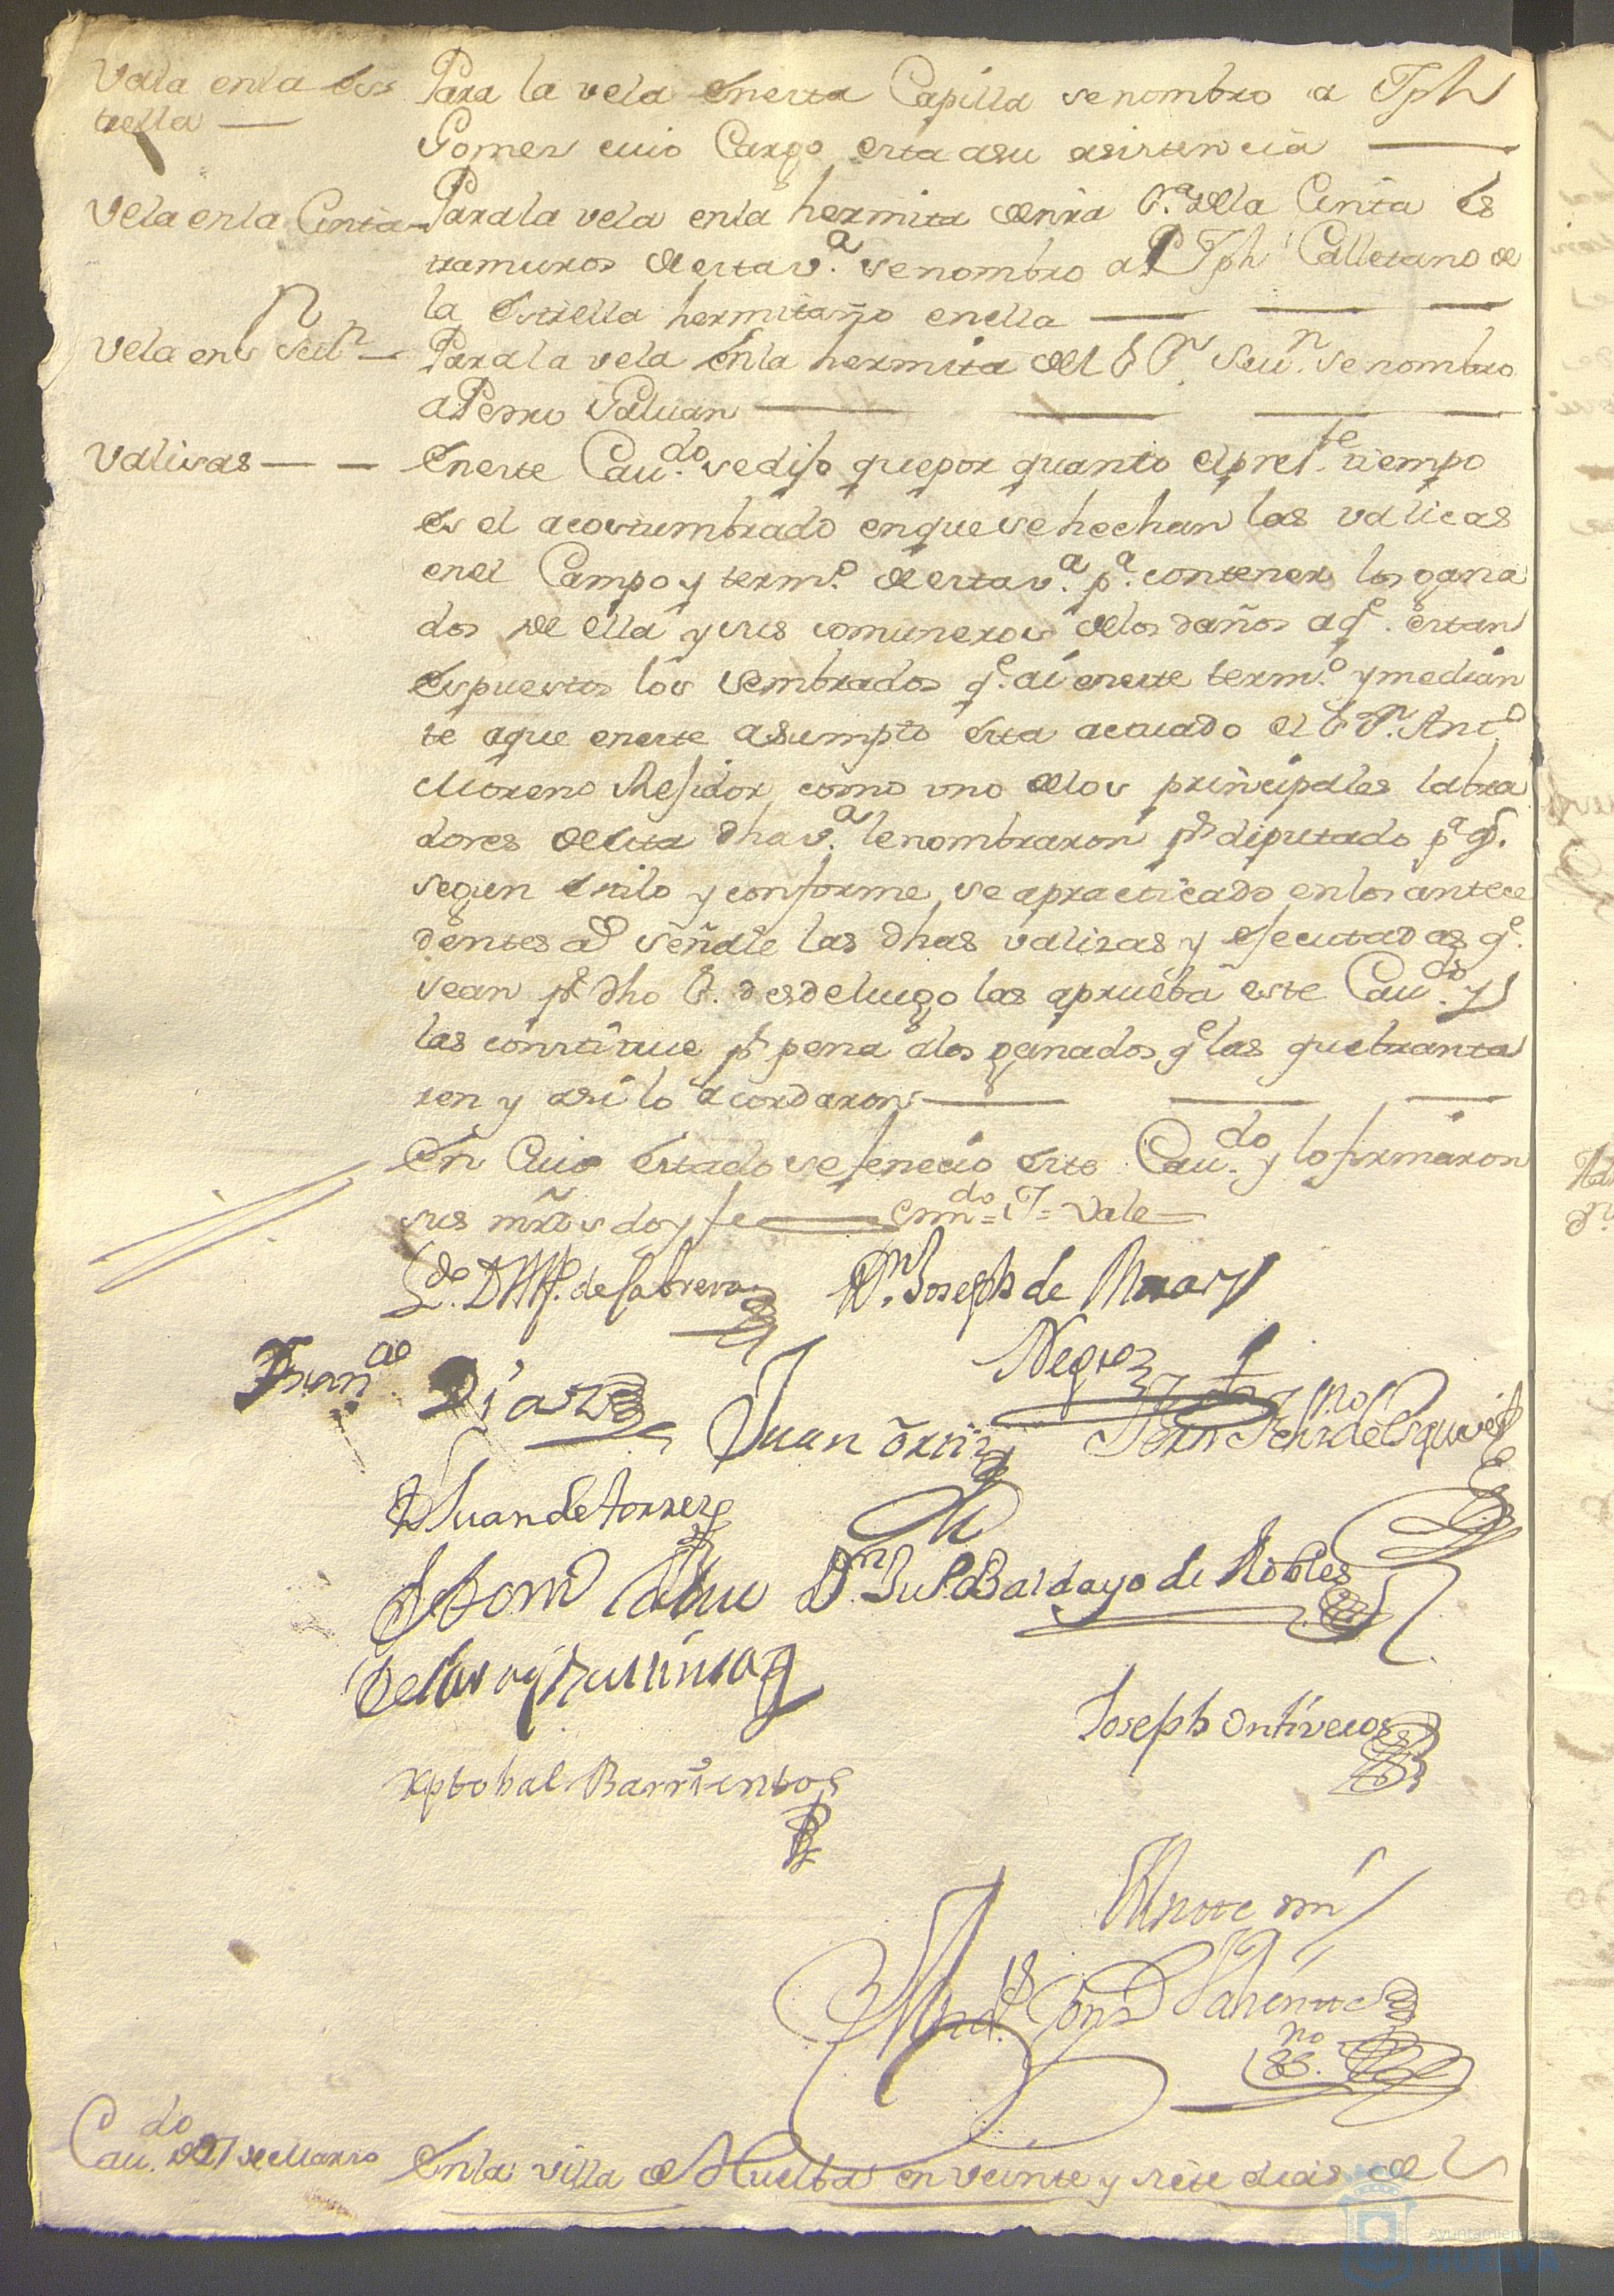 Vala en la Es
trella —
Para la vela en esta Capilla se nombro a Jph
Gomes cuio Cargo esta a su asistencia —
Vela en la Cinta
Para la vela en la hermita de nra Sra. de la Cinta es
tramuros de esta va. se nombro a Jph Calletano de
la Estrella hermitaño en ella —
Vela en Sn Sebn —
Para la vela en la hermita del Sr. Sn Seun. se nombro
a Pedro Galuan —
Valisas — —
En este Caudo. se dijo que por quanto el preste. tiempo
es el acostumbrado en que se hechan las valicas
en el Campo y termo. de esta va. pa. contener los gana
dos de ella y sus comuneros de los daños a qe. estan
espuestos los sembrados qe. ai en este termo. y median
te a que en este asumpto esta actuado el Sr. Dn. Anto.
Moreno Rejidor, como uno de los principales labra
dores de esta dha va. le nombraron pr diputado pa. qe.
segun estilo y conforme se a practicado en los antece
dentes as. señale las dhas valisas y ejecutadas qe.
sean pr dho Sr. desde luego las aprueba este Caudo. y
las constitue pr pena a los ganados qe las quebranta
ren y asi lo acordaron —
En cuio estado se fenecio este Caudo. y lo firmaron
sus mrds doy fe — Enmdo = T = Vale —
Ldo. D de Cabrera
Dn. Joseph de Mora y
Negro
Franco. Diaz
Juan Ortiz
Juan de Torres
Dn. Baldayo de Robles
Joseph Ontiveros
Xptobal Barrientos
Ante mi
no
Caudo. de 27 de Marzo
En la villa de Huelba en veinte y siete dias de
Ayuntamiento de
HUELVA